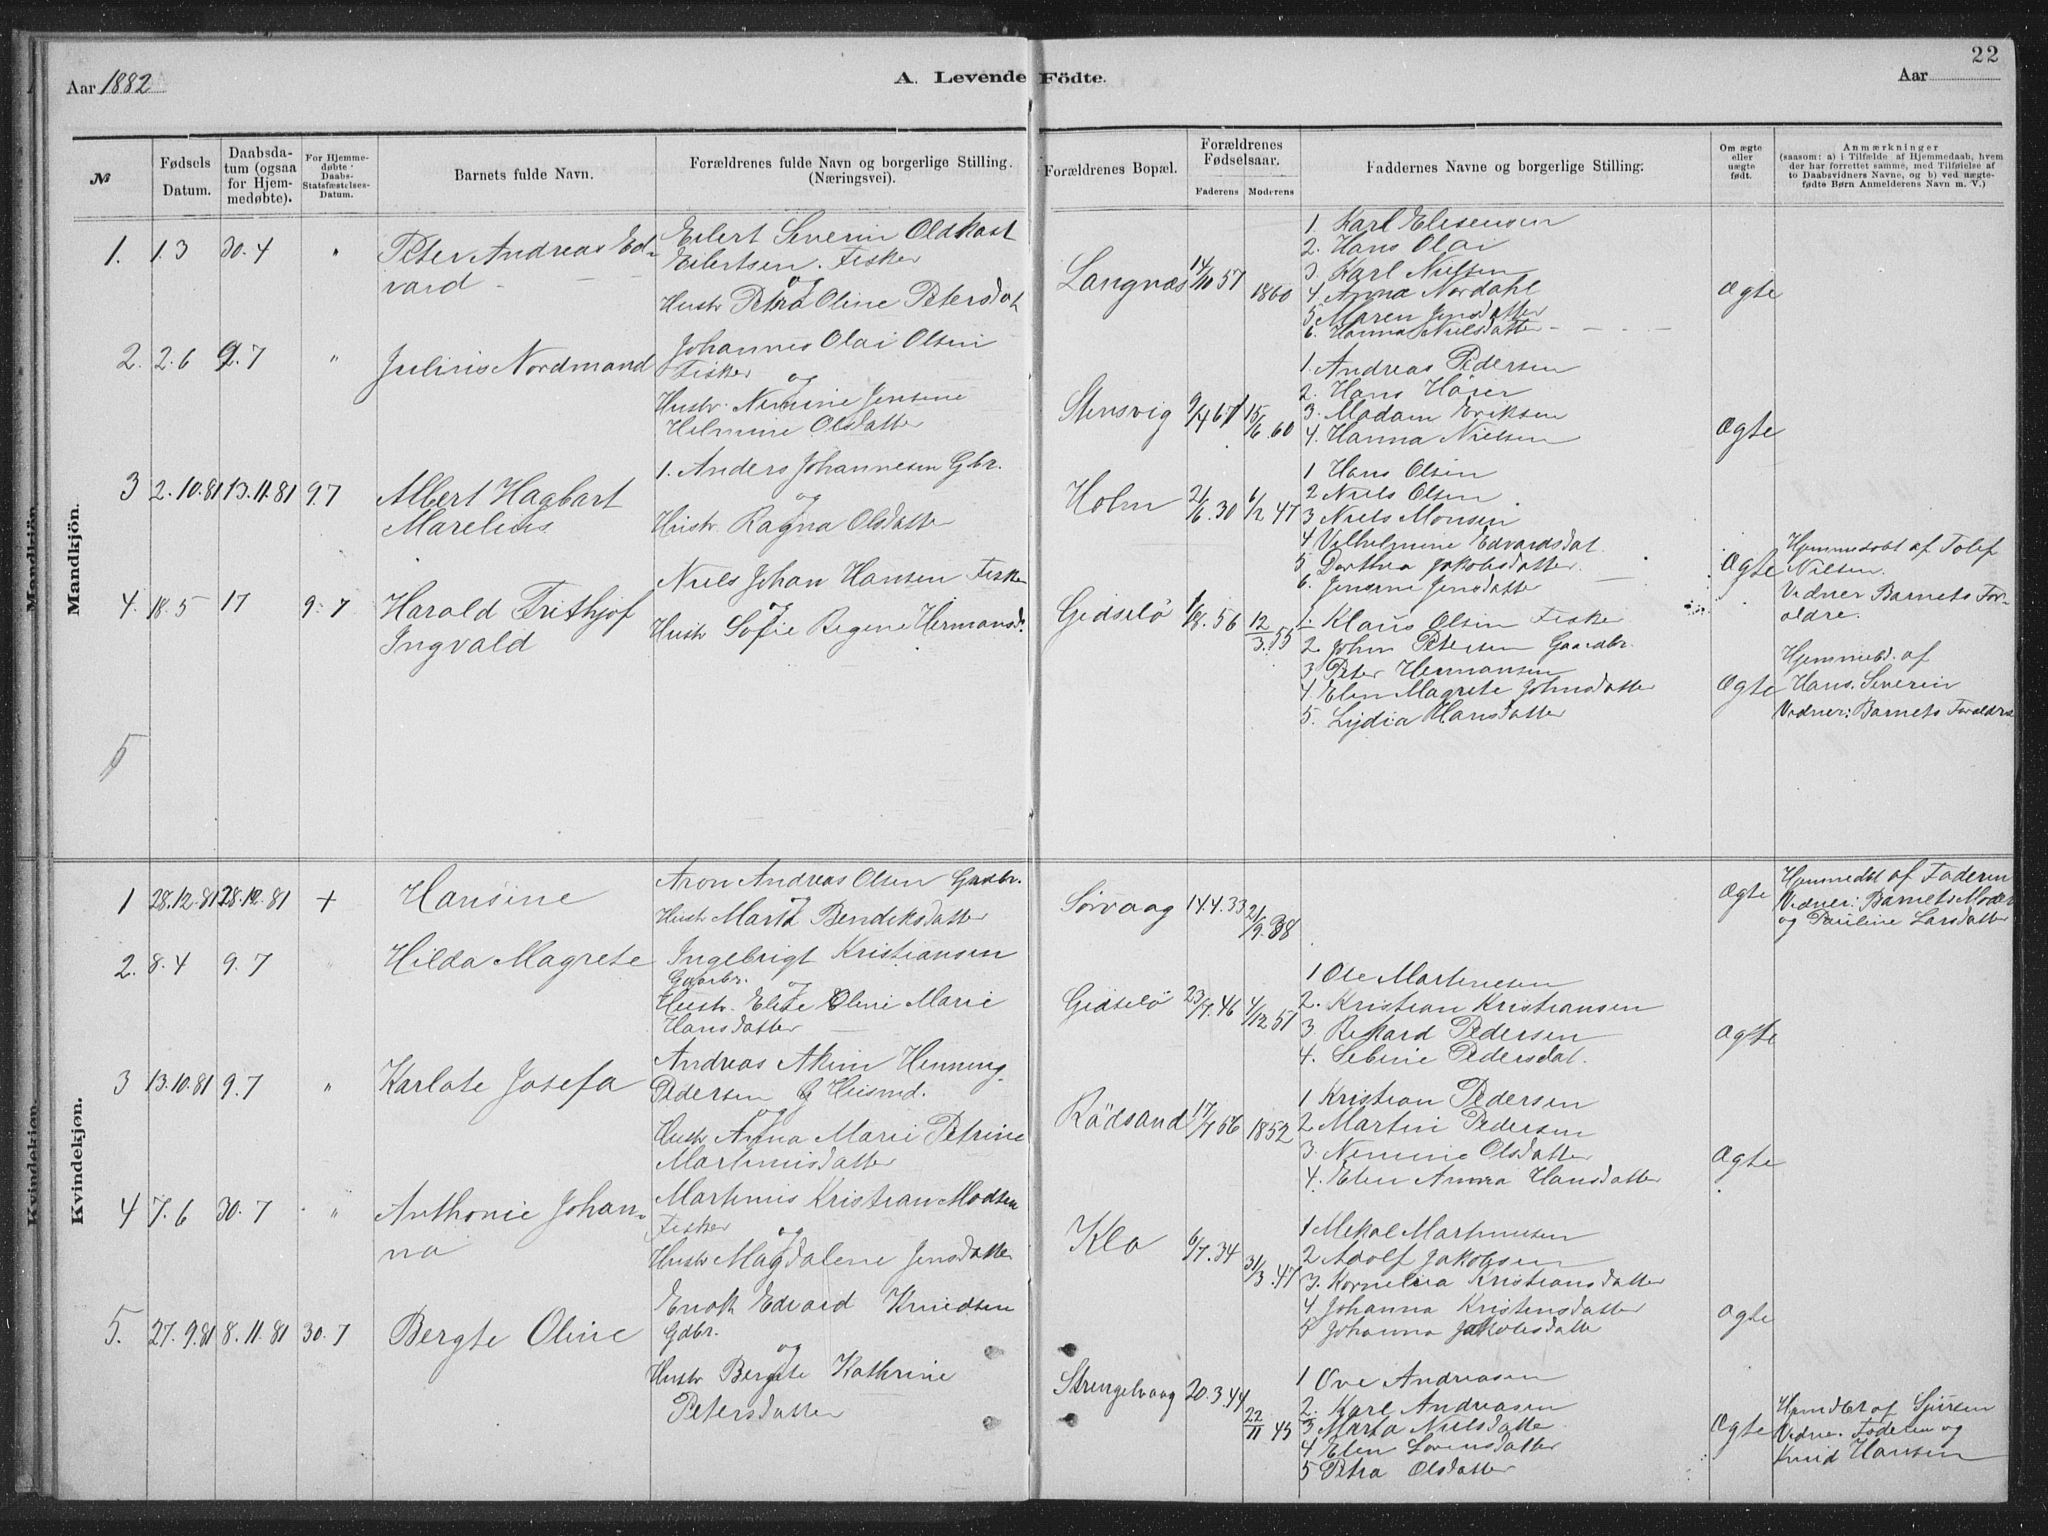 22
Aar 1882
A. Levende Födte.
Aar
№
Fødsels Datum.
Daabsda-
tum (ogsaa
for Hjem-
medøbte).
For Hjemme-
døbte
Daabs-
Statsfæstelses-
Datum.
Barnets fulde Navn.
Forældrenes fulde Navn og borgerlige Stilling.
(Næringsvei).
Forældrenes Bopæl.
Forældrenes
Fødselsaar.
Faderens Moderens
Faddernes Navne og borgerlige Stilling.
Om ægte
eller
uægte
født.
Anmærkninger
(saasom: a) i Tilfælde af Hjemmedaab, hvem
der har forrettet samme, med Tilføielse af
to Daabsvidners Navne, og b) ved uægte-
fødte Børn Anmelderens Navn m. V.)
Mandkjön.
1. 1.3 30.4 "
Peter Andreas Ed-
vard
Eilert Severin Oldkast
Eilertsen. Fisker
og
Hustr Petra Oline Petersdat
Langnæs 14/10 57 1860
1. Karl Elisensen
2. Hans Olai
3. Karl Nielsen
4. Anna Nordahl
5. Maren Jensdatter
6. Hanna Nielsdatter
Ægte
2. 2.6 9.7 "
Julius Nordmand
Johannes Olai Olsen
Fisker og
Hustr. Nemine Jensine
Helmine Olsdatter
Stensvig 9/4 67 15/6 60
1. Andreas Pedersen
2. Hans Höier
3. Madam Eriksen
4. Hanna Nielsen
Ægte
3 2.10.81 13.11.81 9.7
Albert Hagbart
Marelius
1. Anders Johannesen Gbr.
og
Hustr Ragna Olsdatter
Holm 21/6. 30 6/12 47
1 Hans Olsen
2 Niels Olsen
3 Niels Monsen
4 Vilhelmine Edvardsdat
5 Dorthea Jakobsdatter
6. Jensine Jensdatter
Ægte
Hjemmedøbt af Tolef
Nilsen.
Vidner Barnets For-
ældre.
4. 18.5 17 9.7
Harald Frithjof
Ingvald
Niels Johan Hansen Fisker
og
Hustr Sofie Regine Hermansd.
Gidselö 1/8. 56 12/3. 55
1. Klaus Olsen Fisker
2. John Petersen Gaardbr.
3 Peter Hermansen
4 Elen Magrete Johnsdatter
5. Lydia Hansdatter
Ægte
Hjemmed. af
Hans. Severin
Vidner: Barnets Forældre
5
Kvindekjøn.
1 28.12.81 28.12.81 +
Hansine
Aron Andreas Olsen Gaardbr.
og
Hustr Marta Bendiksdatter
Sörvaag 14.4.33 21/9. 38
Ægte
Hjemmedøbt af Faderen
Vidner: Barnets Moder
og Pauline Larsdatter
2. 8.4 9.7 "
Hilda Magrete
Ingebrigt Kristiansen
Gaarbr. og
Hustr. Elise Oline Marie
Hansdatter
Gidselö 23/9. 46 4/12 51
1 Ole Martinesen
2. Kristian Kristiansen
3 Rikard Pedersen
4. Sebine Pedersdat.
Ægte
3 13.10.81 9.7 "
Karlate Josefa
Andreas Akim Henning
Pedersen G Husmd.
og
Hustr Anna Marie Petrine
Martinusdatter
Rödsand 17/7 56 1852
1 Kristian Pedersen
2 Martin Pedersen
3. Nemine Olsdatter
4. Elen Anna Hansdatter
Ægte
4 7.6 30.7 "
Anthonie Johan-
na
Martinus Kristian Madsen
Fisker og
Hustr Magdalene Jensdatter
Klo 6/7. 34 31/3. 47
1 Mekal Martinusen
2 Adolf Jakobsen
3. Kornelia Kristiansdatter
4 Johanna Kristensdatter
5 Johanna Jakobsdatter
Ægte
5. 27.9.81 8.11.81 30.7
Bergte Oline
Enok Edvard Knudsen
Gdbr.
og
Hustr Bergete Kathrine
Petersdatter
Strengelvaag 20.3.44 22/11 43
1 Ove Andreasen
2. Karl Andreasen
3 Marta Nielsdatter
4 Elen Lorensdatter
5 Petra Olsdatter
Ægte
Hjemdbt af Sjursen
Vidne. Faderen og
Knud Hansen